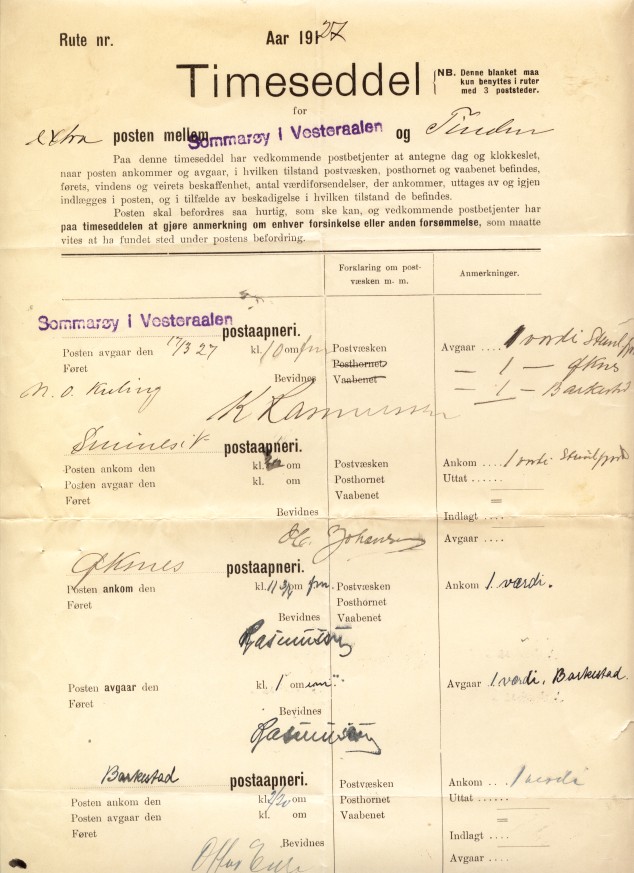 Rute nr. Aar 1927
Timeseddel
NB. Denne blanket maa
kun benyttes i ruter
med 3 poststeder.
for
extra posten mellem Sommarøy i Vesteraalen og Tinden
Paa denne timeseddel har vedkommende postbetjenter at antegne dag og klokkeslet,
naar posten ankommer og avgaar, i hvilken tilstand postvæsken, posthornet og vaabenet befindes,
førets, vindens og veirets beskaffenhet, antal værdiforsendelser, der ankommer, uttages av og igjen
indlægges i posten, og i tilfælde av beskadigelse i hvilken tilstand de befindes.
Posten skal befordres saa hurtig, som ske kan, og vedkommende postbetjenter har
paa timeseddelen at gjøre anmerkning om enhver forsinkelse eller anden forsømmelse, som maatte
vites at ha fundet sted under postens befordring.
Forklaring om post-
væsken m. m.
Anmerkninger.
Sommarøy i Vesteraalen
postaapneri.
Posten avgaar den 17/3 27 kl. 10 om fm Postvæsken Avgaar .... 1 værdi
Føret Posthornet — 1 — Øksnes
Bevidnes Vaabenet — 1 — Barkestad
N. O. Kuling
K Rasmussen
postaapneri.
Posten ankom den kl. om Postvæsken Ankom .... 1 værdi
Posten avgaar den kl. om Posthornet Uttat .....
Føret Vaabenet
Bevidnes Indlagt ....
Johansen Avgaar ....
Øksnes postaapneri.
Posten ankom den kl. 11 3/4 om fm. Postvæsken Ankom 1 værdi.
Føret Posthornet
Bevidnes Vaabenet
Rasmussen
Posten avgaar den kl. 1 om em. Avgaar 1 værdi, Barkestad.
Føret
Bevidnes
Rasmussen
Barkestad postaapneri. Postvæsken Ankom .... 1 værdi
Posten ankom den kl. om Posthornet Uttat ......
Posten avgaar den kl. om Vaabenet
Føret Indlagt ....
Bevidnes
Avgaar ....